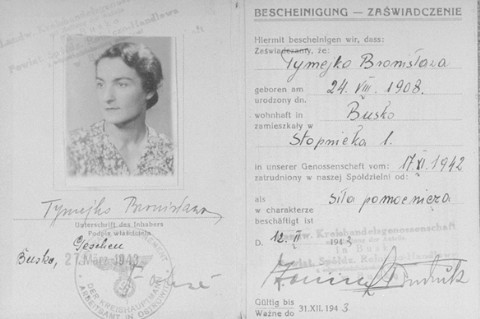 Landw. Kreishandels
Powiat. Sp
Tymejko Bronisława
Unterschrift des Inhabers
Podpis właściciela
Gesehen
Busko, 27. März 1943
DER KREISHAUPTMANN
ARBEITSAMT IN
BESCHEINIGUNG — ZAŚWIADCZENIE
Hiermit bescheinigen wir, dass:
Zaświadczamy, że:
Tymejko Bronisława
geboren am
urodzony dn.
24. VIII. 1908.
wohnhaft in
zamieszkały w
Busko
Stopnicka 1.
in unserer Genossenschaft vom:
zatrudniony w naszej Spółdzielni od:
17 XI. 1942
als
w charakterze
siła pomocnicza
beschäftigt ist
D. 12. II 1943
Landw. Kreishandelsgenossenschaft
in Busko
Powiat. Spółdz. Rolniczo-Handlowa
Gültig bis
Ważne do
31.XII. 1943.